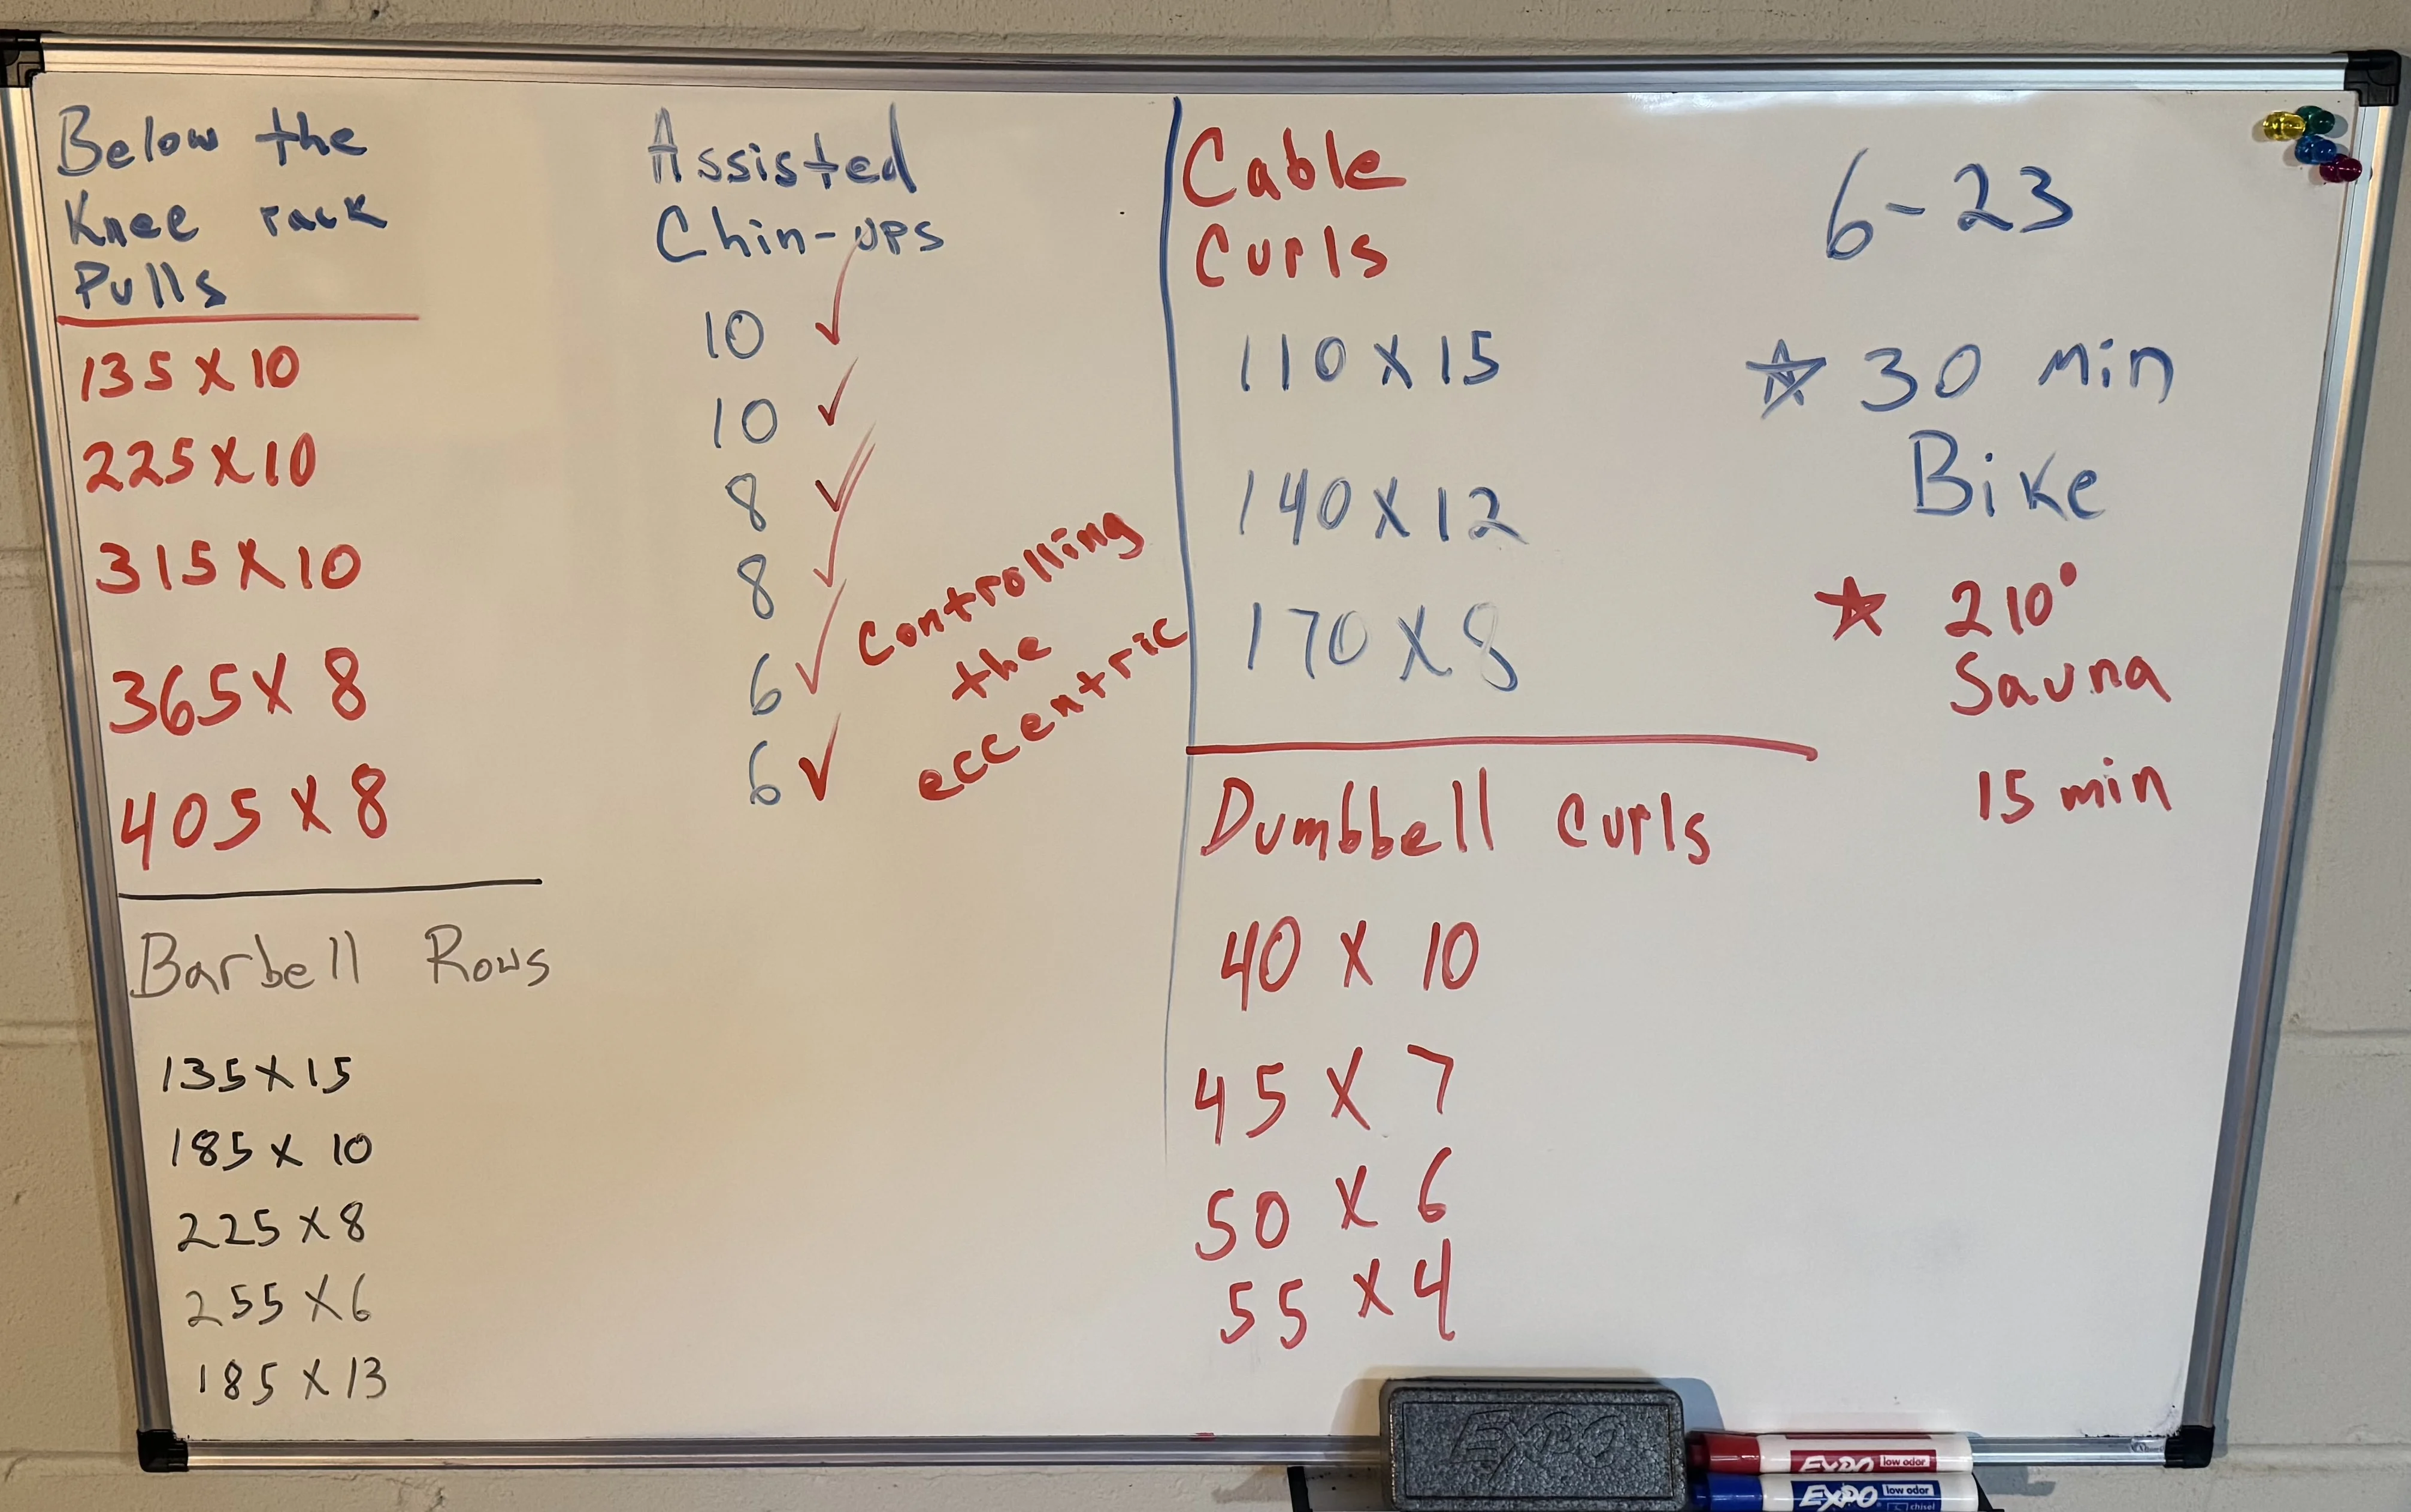 Below the
Knee rack
Pulls
135 x 10
225 x 10
315 x 10
365 x 8
405 x 8
Barbell Rows
135 x 15
185 x 10
225 x 8
255 x 6
185 x 13
Assisted
Chin-ups
10 ✓
10 ✓
8 ✓
8 ✓
6 ✓
6 ✓
Controlling
the
eccentric
Cable
Curls
110 x 15
140 x 12
170 x 8
Dumbbell Curls
40 x 10
45 x 7
50 x 6
55 x 4
6-23
☆ 30 min
Bike
★ 210°
Sauna
15 min
EXPO
EXPO low odor
EXPO low odor
chisel